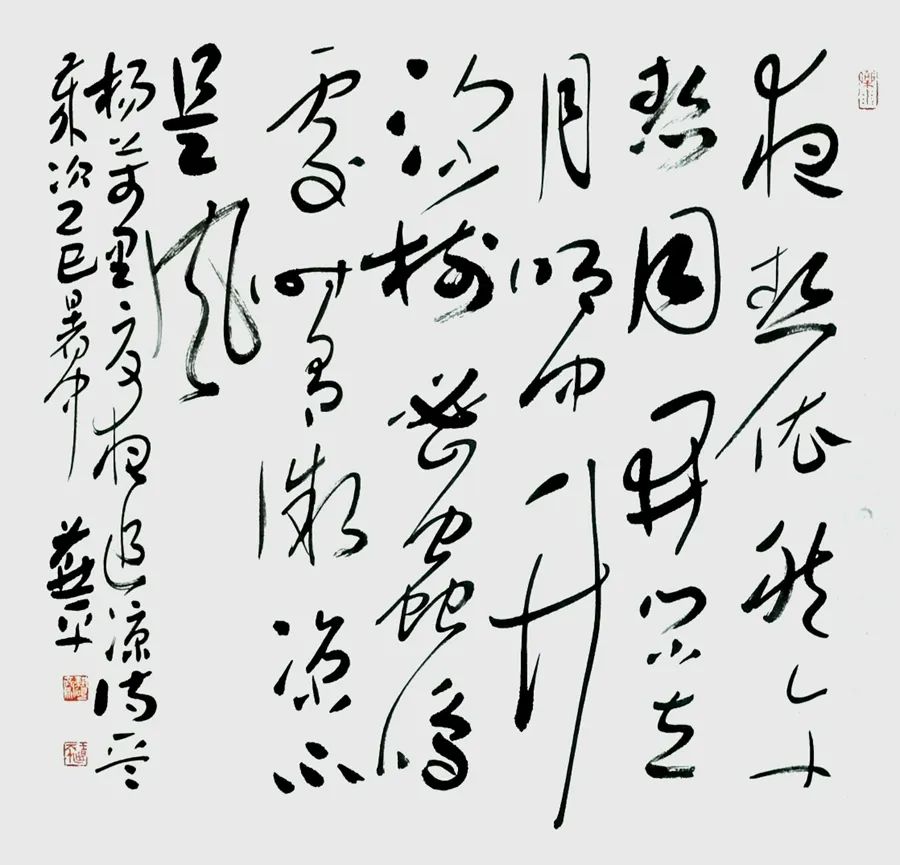 夜热依然午
热同開门小立
月明中竹
深树密蟲鸣
處时有微凉不
是风
杨万里夏夜追凉诗一首
歲次乙巳暑中 平